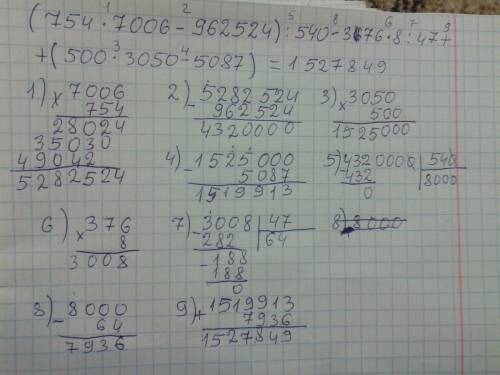 (754 · 7006 - 962524) : 540 - 376 · 8 : 47 +
+ (500 · 3050 - 5087) = 1527849
1) × 7006
754
28024
35030
49042
5282524
2) - 5282524
962524
4320000
3) × 3050
500
1525000
4) - 1525000
5087
1519913
5) - 4320000 | 540
432 | 8000
0
6) × 376
8
3008
7) - 3008 | 47
282 | 64
- 188
188
0
8) - 8000
8) - 8000
64
7936
9) + 1519913
7936
1527849